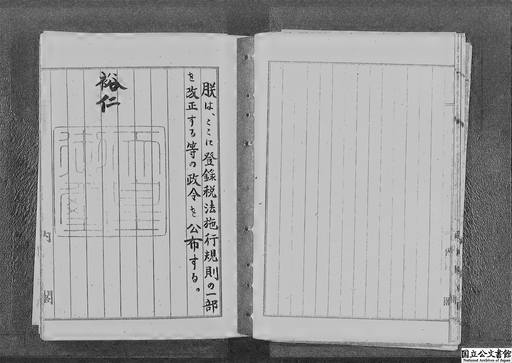 朕は、ここに登録税法施行規則の一部
を改正する等の政令を公布する。
裕仁
天皇
御璽
内閣
国立公文書館
National Archives of Japan